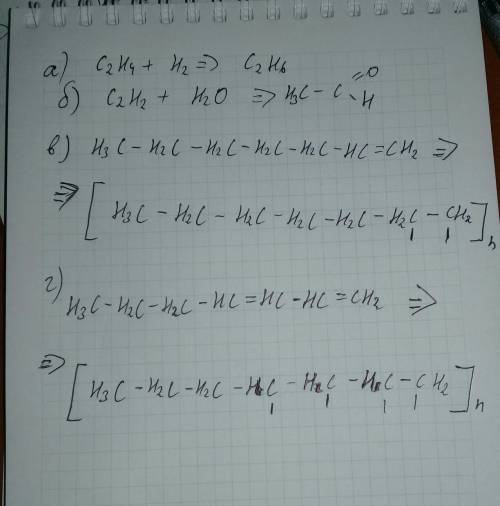 а) C2H4 + H2 => C2H6
б) C2H2 + H2O => H3C - C =O - H
в) H3C - H2C - H2C - H2C - H2C - HC = CH2 =>
=> [ H3C - H2C - H2C - H2C - H2C - H2C - CH2 ]n
г) H3C - H2C - H2C - HC = HC - HC = CH2 =>
=> [ H3C - H2C - H2C - C - C - C - CH2 ]n